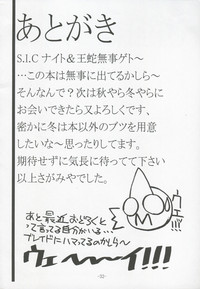 あとがき
S.I.Cナイト&王蛇無事ゲト〜
…この本は無事に出てるかしら〜
そんなんで?次は秋やら冬やらに
お会いできたら又よろしくです、
密かに冬は本以外のブツを用意
したいな〜思ったりしてます。
期待せずに気長に待ってて下さい
以上さがみやでした。
ウェ!!!
あと最近おどろくと
って言ってる自分がいる…
ブレイドにハマってるのかしら〜
ウェ〜〜イ!!!